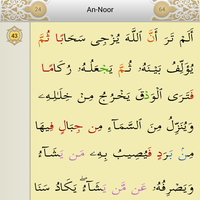 24 An-Noor 64
43 أَلَمْ تَرَ أَنَّ ٱللَّهَ يُزْجِى سَحَابًا ثُمَّ
يُؤَلِّفُ بَيْنَهُۥ ثُمَّ يَجْعَلُهُۥ رُكَامًا
فَتَرَى ٱلْوَدْقَ يَخْرُجُ مِنْ خِلَـٰلِهِۦ
وَيُنَزِّلُ مِنَ ٱلسَّمَآءِ مِن جِبَالٍ فِيهَا
مِنۢ بَرَدٍ فَيُصِيبُ بِهِۦ مَن يَشَآءُ
وَيَصْرِفُهُۥ عَن مَّن يَشَآءُ ۖ يَكَادُ سَنَا